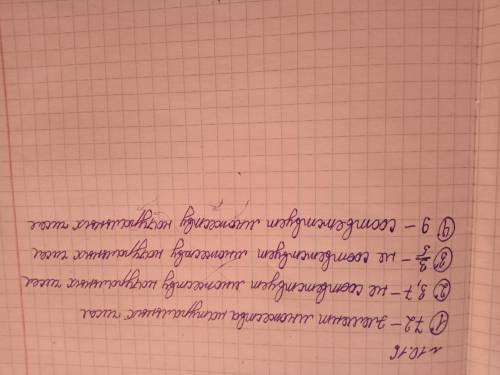 н 10.16
① 72 – элемент множества натуральных чисел
② 8,7 – не соответствует множеству натуральных чисел
③ 2/3 – не соответствует множеству натуральных чисел
④ 9 – соответствует множеству натуральных чисел